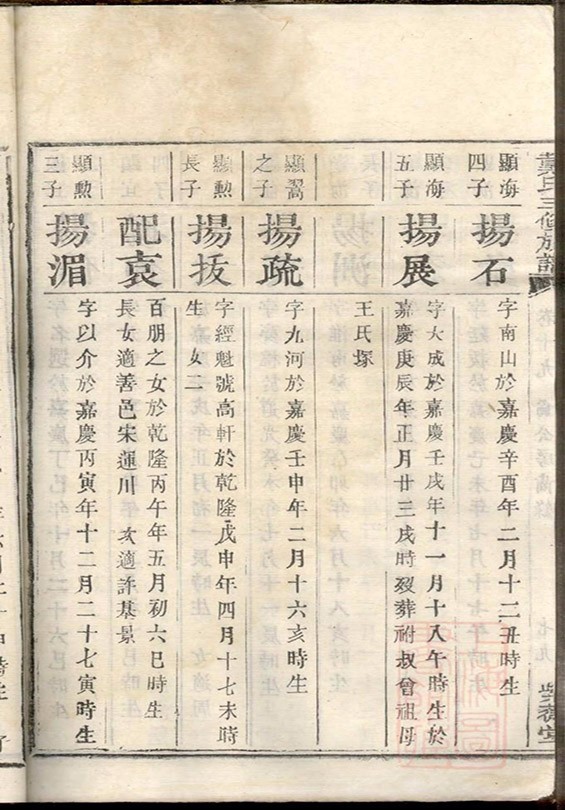 戴氏三修族譜
顯海
四子
揚石
字南山於嘉慶辛酉年二月十二丑時生
顯海
五子
揚展
字大成於嘉慶壬戌年十一月十八午時生於
嘉慶庚辰年正月廿三戌時歿葬祔叔曾祖母
王氏塚
顯翯
之子
揚疏
字九河於嘉慶壬申年二月十六亥時生
顯勲
長子
揚拔
字經魁號高軒於乾隆戊申年四月十七未時
生 女二
配袁
百朋之女於乾隆丙午年五月初六巳時生
長女適善邑宋運川 次適許基景
顯勲
三子
揚湄
字以介於嘉慶丙寅年十二月二十七寅時生